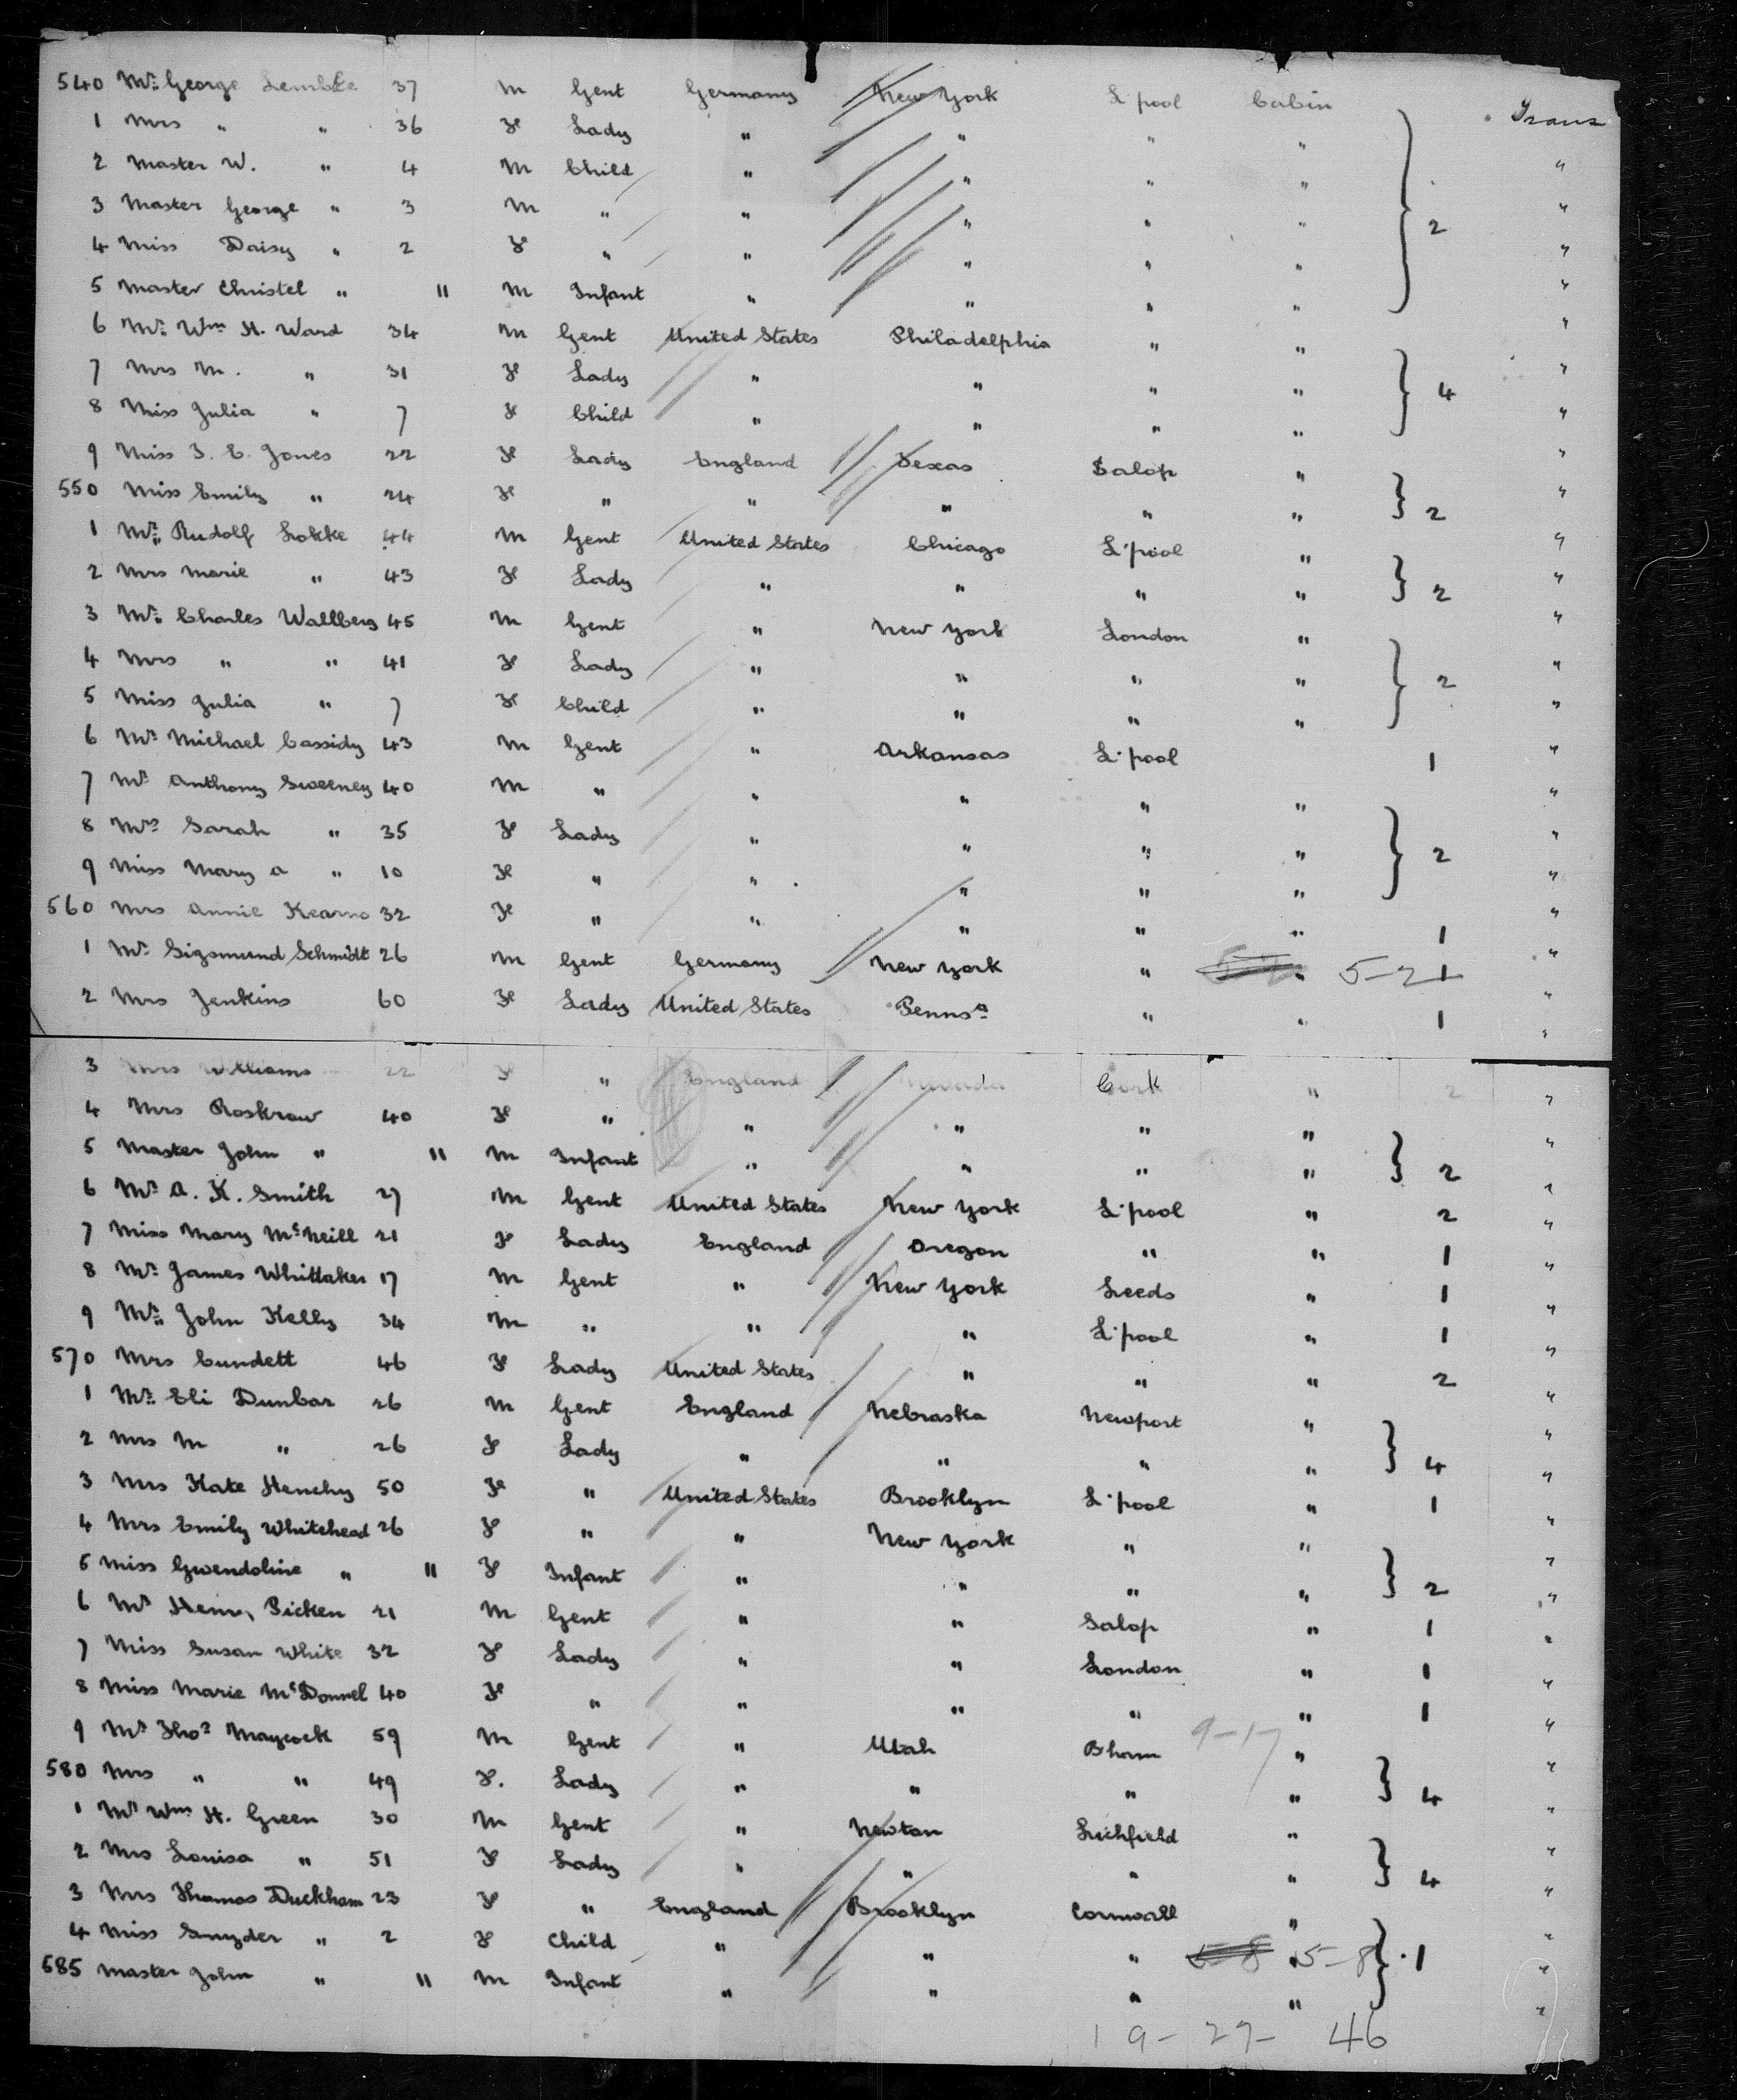 540 Mr. George Lembke 37 M Gent Germany New York L'pool Cabin Trans
1 Mrs " " 36 F Lady " " " " "
2 Master W. " 4 M Child " " " " "
3 Master George " 3 M " " " " " 2 "
4 Miss Daisy " 2 F " " " " " "
5 Master Christel " " M Infant " " " " "
6 Mr. Wm H. Ward 34 M Gent United States Philadelphia " " "
7 Mrs M. " 31 F Lady " " " " 4 "
8 Miss Julia " 7 F Child " " " " "
9 Miss S. E. Jones 22 F Lady England Texas Salop " "
550 Miss Emily " 24 F " " " " " 2 "
1 Mr. Rudolf Lokke 44 M Gent United States Chicago L'pool " "
2 Mrs Marie " 43 F Lady " " " " 2 "
3 Mr. Charles Wallberg 45 M Gent " New York London " "
4 Mrs " " 41 F Lady " " " " 2 "
5 Miss Julia " 7 F Child " " " " "
6 Mr Michael Cassidy 43 M Gent " Arkansas L'pool 1 "
7 Mr Anthony Sweeney 40 M " " " " " "
8 Mrs Sarah " 35 F Lady " " " " 2 "
9 Miss Mary A " 10 F " " " " " "
560 Mrs Annie Kearns 32 F " " " " " 1 "
1 Mr. Sigsmund Schmidt 26 M Gent Germany New York " " 5-2 1 "
2 Mrs Jenkins 60 F Lady United States Pennsa " " 1 "
3 Mrs Williams 22 F " England Cork " 2 "
4 Mrs Roskrow 40 F " " " " " "
5 Master John " " M Infant " " " " 2 "
6 Mr A. K. Smith 27 M Gent United States New York L'pool " 2 "
7 Miss Mary McNeill 21 F Lady England Oregon " " 1 "
8 Mr. James Whittaker 17 M Gent " New York Leeds " 1 "
9 Mr. John Kelly 34 M " " " L'pool " 1 "
570 Mrs Cundett 46 F Lady United States " " " 2 "
1 Mr. Eli Dunbar 26 M Gent England Nebraska Newport " "
2 Mrs M " 26 F Lady " " " " 4 "
3 Mrs Kate Henchy 50 F " United States Brooklyn L'pool " 1 "
4 Mrs Emily Whitehead 26 F " " New York " " "
5 Miss Gwendoline " " F Infant " " " " 2 "
6 Mr Henry Picken 21 M Gent " " Salop " 1 "
7 Miss Susan White 32 F Lady " " London " 1 "
8 Miss Marie McDonnel 40 F " " " " " 1 "
9 Mr Thos Maycock 59 M Gent " Utah Bham 9-17 " "
580 Mrs " " 49 F. Lady " " " " 4 "
1 Mr Wm H. Green 30 M Gent " Newton Lichfield " "
2 Mrs Louisa " 51 F Lady " " " " 4 "
3 Mrs Thomas Duckham 23 F " England Brooklyn Cornwall " "
4 Miss Snyder " 2 F Child " " " 5-8 " 5-8 1 "
585 Master John " " M Infant " " " " "
19- 27- 46